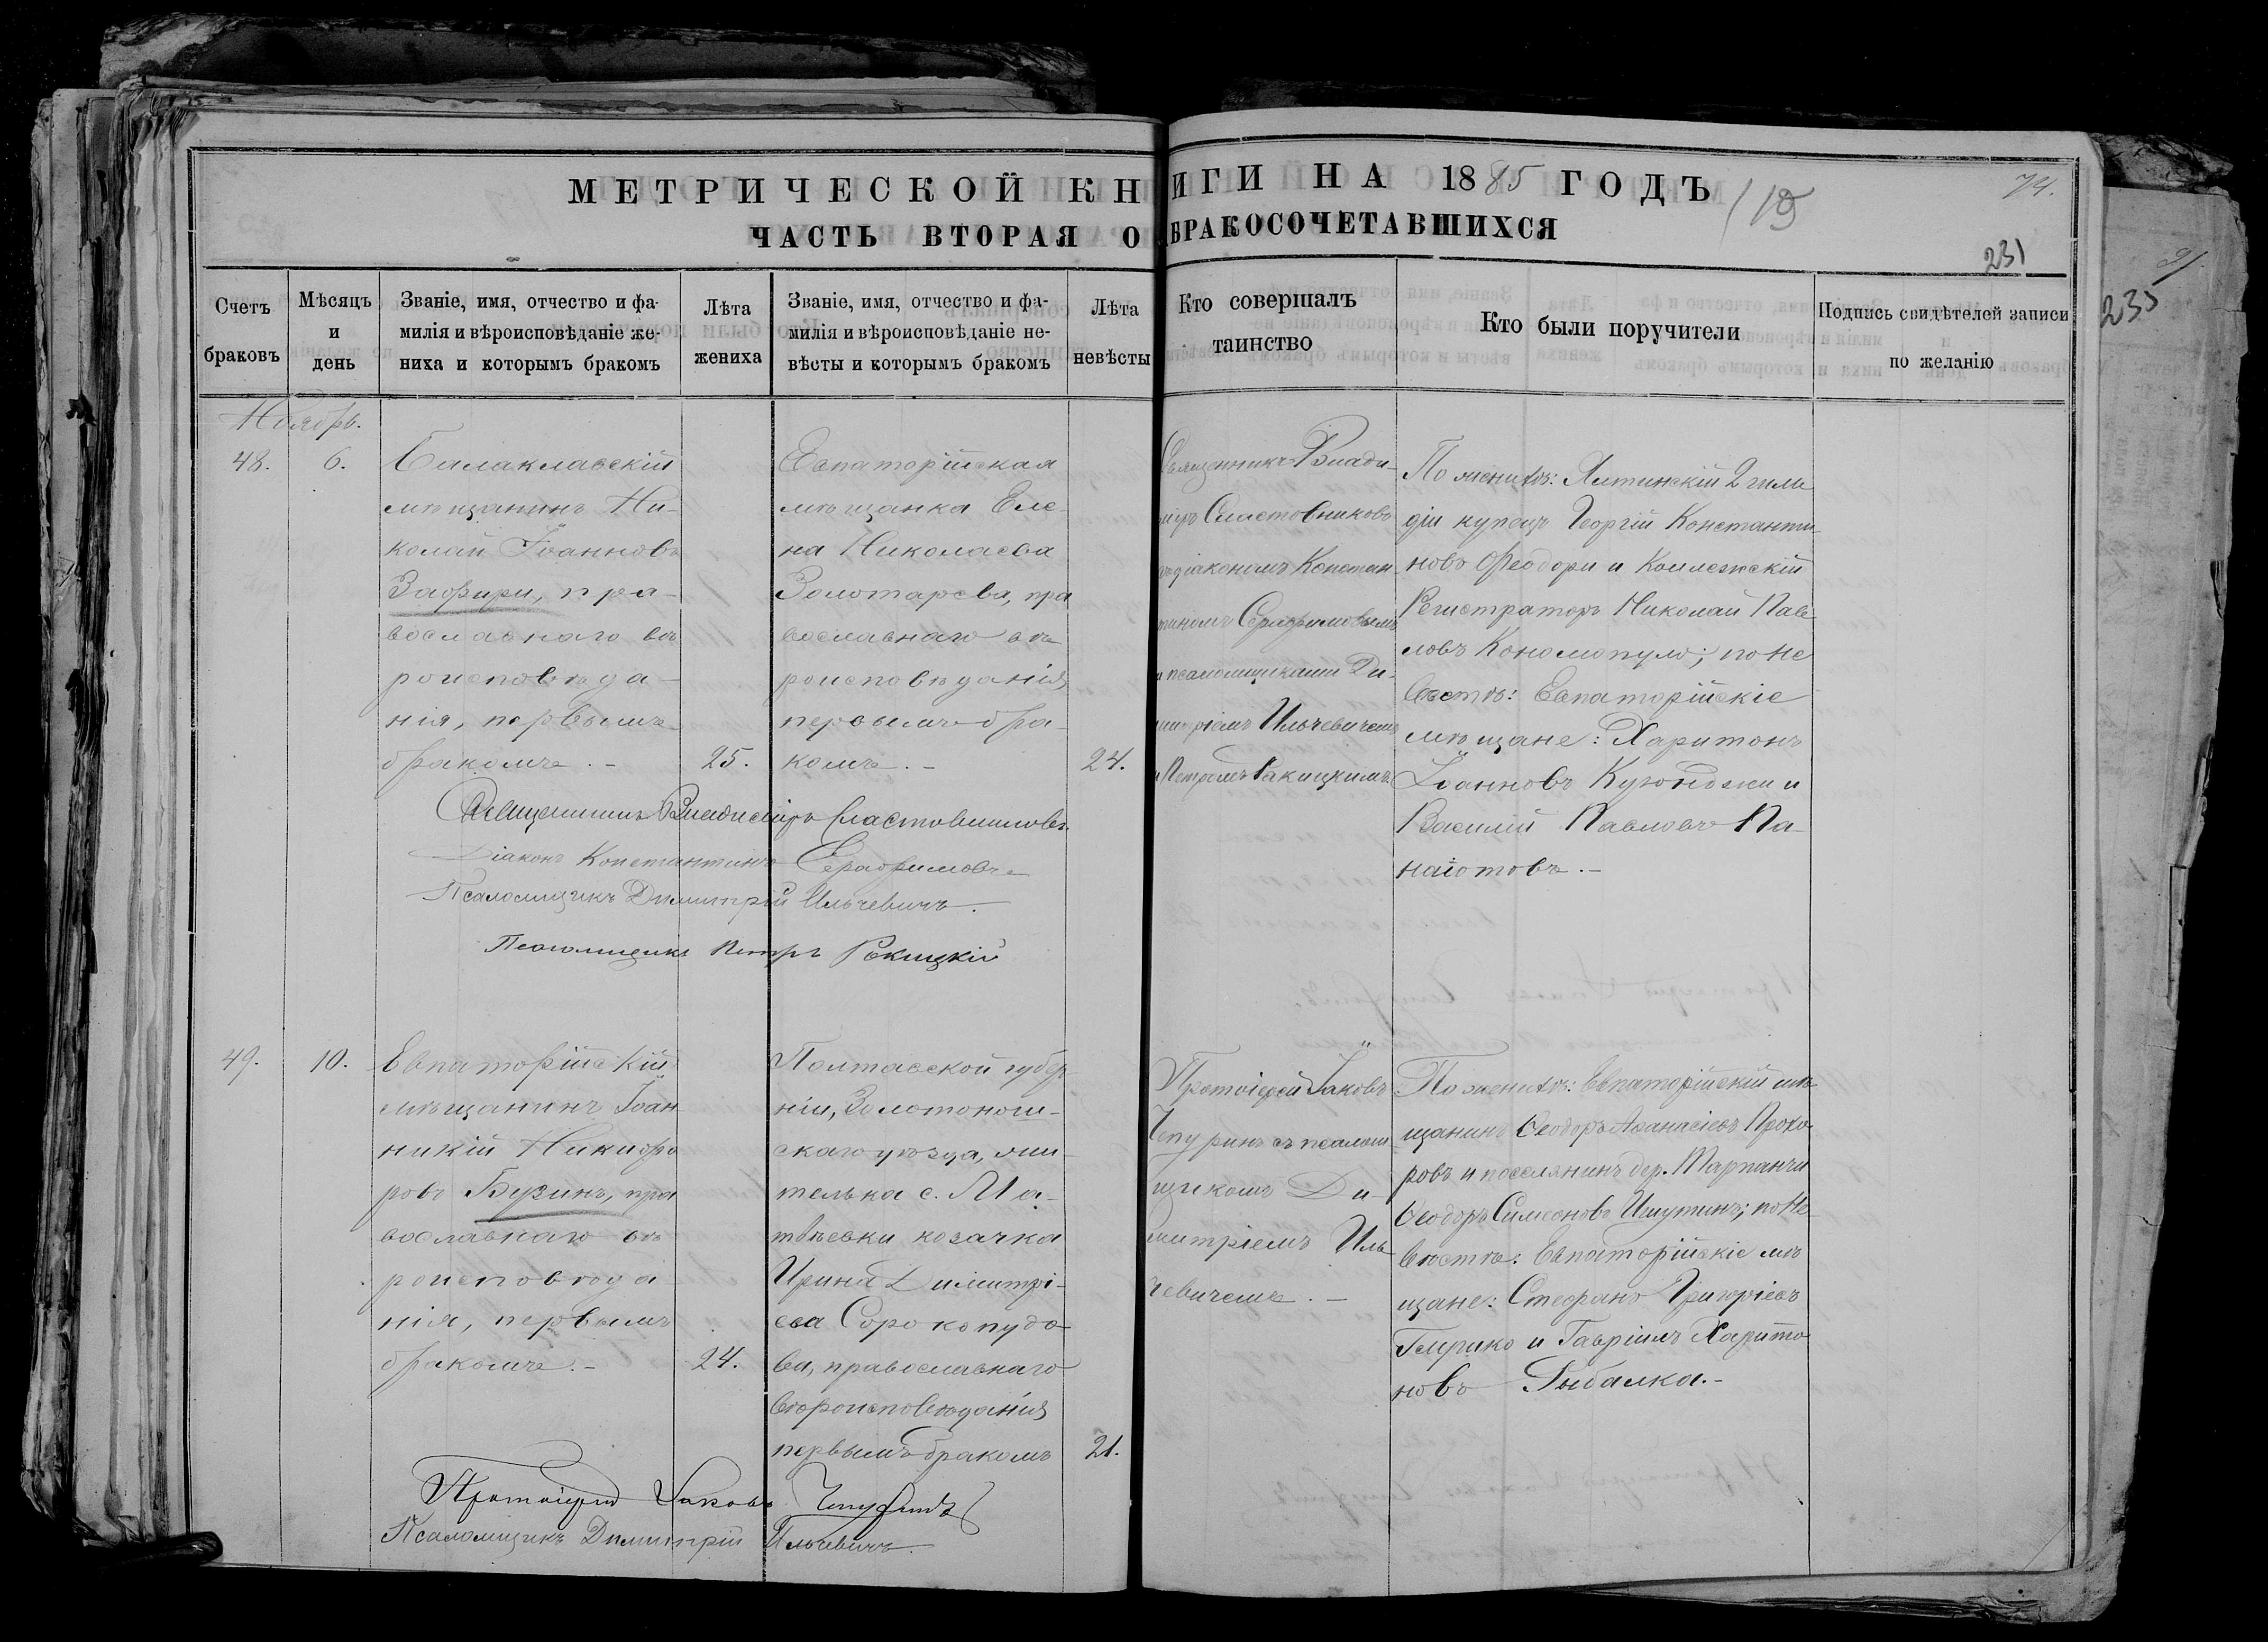 МЕТРИЧЕСКОЙ КНИГИ НА 1885 ГОДЪ
74.
ЧАСТЬ ВТОРАЯ О БРАКОСОЧЕТАВШИХСЯ
231
235
Счетъ
браковъ
Мѣсяцъ
и
день
Званіе, имя, отчество и фа-
милія и вѣроисповѣданіе же-
ниха и которымъ бракомъ
Лѣта
жениха
Званіе, имя, отчество и фа-
милія и вѣроисповѣданіе не-
вѣсты и которымъ бракомъ
Лѣта
невѣсты
Кто совершалъ
таинство
Кто были поручители
Подпись свидѣтелей записи
по желанію
Ноябрь.
48.
6.
Балаклавскій
мѣщанинъ Ни-
колай Іоанновъ
Зафири, пра-
вославнаго вѣ
роисповѣда-
нія, первымъ
бракомъ.-
25.
Евпаторійская
мѣщанка Еле
на Николаева
Золотарева, пра
вославнаго вѣ
роисповѣданія,
первымъ бра-
комъ.-
24.
Священникъ Влади-
міръ Сластовниковъ
съ діакономъ Констан
тиномъ Серафимовымъ
и псаломщиками Ди-
митріемъ Ильчевичемъ
и Петромъ Ракицкимъ
По женихѣ: Ялтинскій 2 гиль
діи купецъ Георгій Константи-
новъ Феодори и Коллежскій
Регистраторъ Николай Пав
ловъ Кономопуло; по не
вѣстѣ: Евпаторійскіе
мѣщане: Харитонъ
Іоанновъ Куюнджи и
Василій Павловъ Па-
наіотовъ.-
Священникъ Владиміръ Сластовниковъ
Діаконъ Константинъ Серафимовъ
Псаломщикъ Димитрій Ильчевичъ.
Псаломщикъ Петръ Ракицкій
49.
10.
Евпаторійскій
мѣщанинъ Іоан
никій Никифо
ровъ Бузинъ, пра
вославнаго вѣ
роисповѣда
нія, первымъ
бракомъ.-
24.
Полтавской губер
ніи, Золотонош-
скаго уѣзда, жи
телька с. Ма-
твѣевки козачка
Ирина Димитрі-
ева Сорокопудо
ва, православнаго
вѣроисповѣданія
первымъ бракомъ
21.
Протоіерей Іаковъ
Чепуринъ съ псалом
щикомъ Ди-
митріемъ Иль
чевичемъ.-
По женихѣ: Евпаторійскій мѣ
щанинъ Ѳеодоръ Аѳанасіевъ Прохо
ровъ и поселянинъ дер. Тарпанчи
Ѳеодоръ Симеоновъ Ишутинъ; по не
вѣстѣ: Евпаторійскіе мѣ
щане: Стефанъ Григоріевъ
и Гавріилъ Харито
новъ Рыбалка.-
Протоіерей Іаковъ Чепуринъ
Псаломщикъ Димитрій Ильчевичъ.